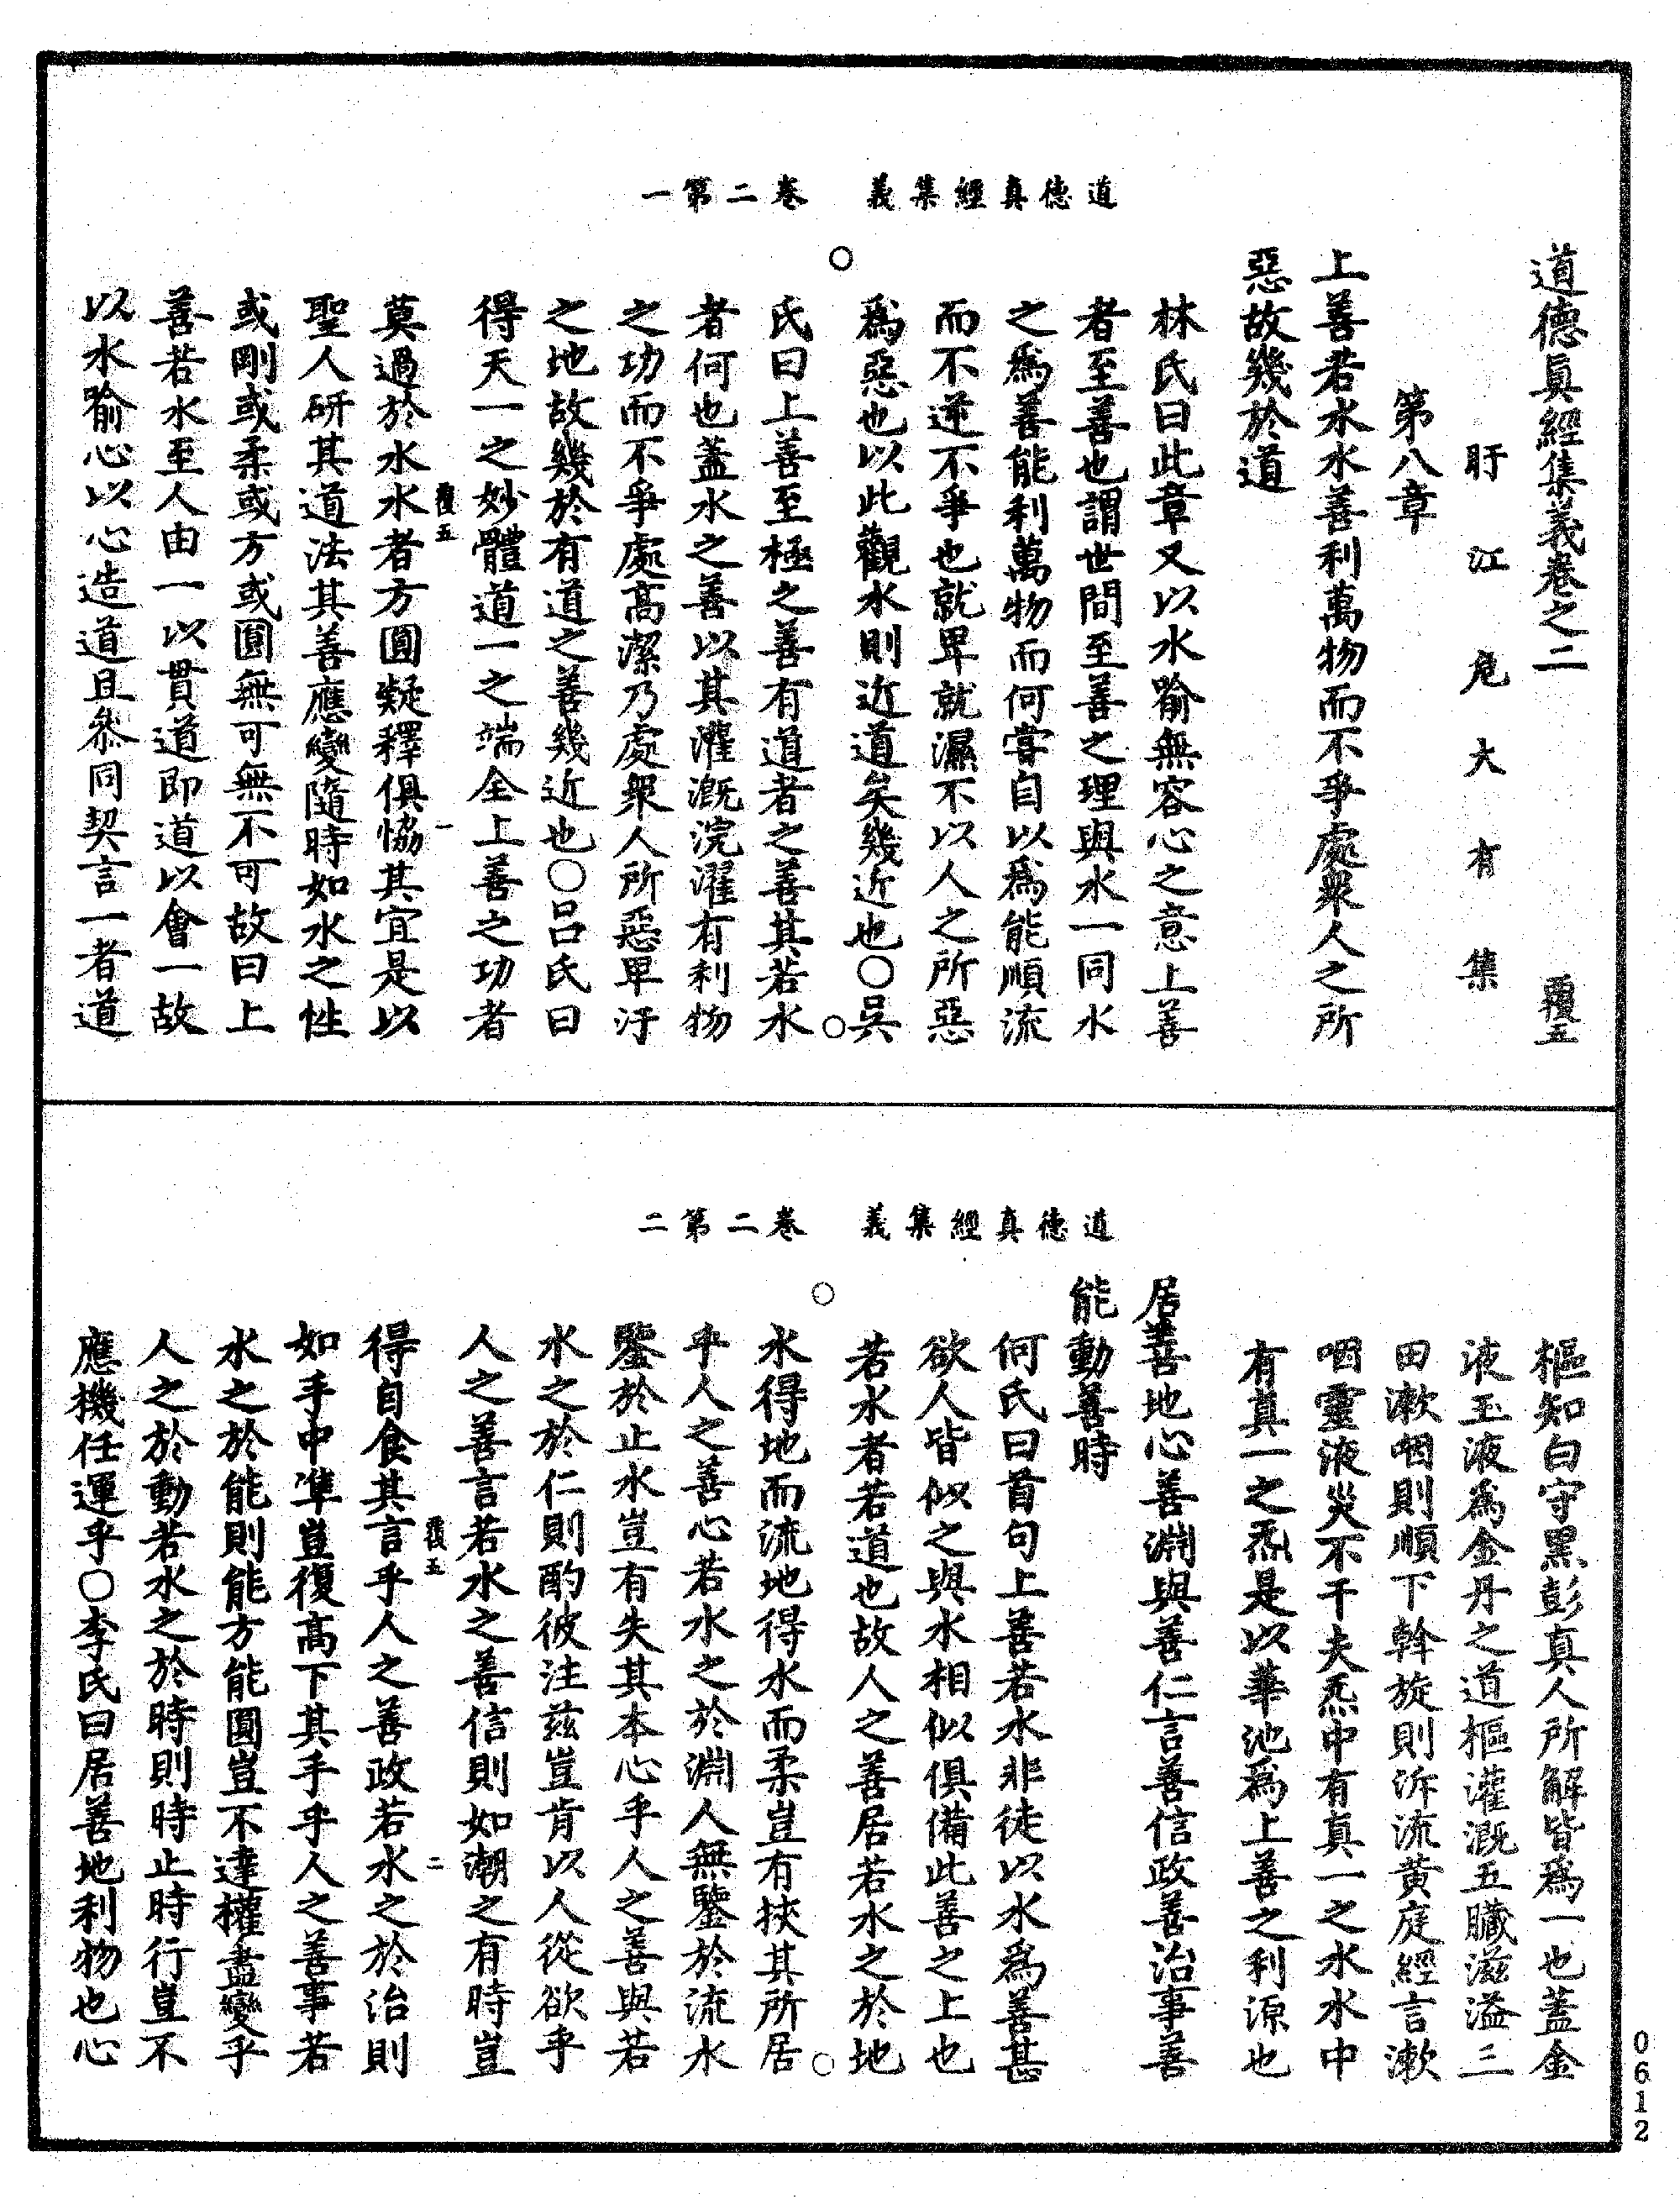 道德真經集義　卷二第一
道德眞經集義卷之二　覆五
盱江危大有集
第八章
上善若水水善利萬物而不爭處衆人之所
惡故幾於道
林氏曰此章又以水喻無容心之意上善
者至善也謂世間至善之理與水一同水
之爲善能利萬物而何嘗自以爲能順流
而不逆不爭也就卑就濕不以人之所惡
爲惡也以此觀水則近道矣幾近也○吳
氏曰上善至極之善有道者之善其若水
者何也蓋水之善以其灌溉浣濯有利物
之功而不爭處高潔乃處衆人所惡卑汙
之地故幾於有道之善幾近也○呂氏曰
得天一之妙體道一之端全上善之功者
覆五　一
莫過於水水者方圓凝釋俱恊其宜是以
聖人研其道法其善應變隨時如水之性
或剛或柔或方或圓無可無不可故曰上
善若水至人由一以貫道即道以會一故
以水喻心以心造道且叅同契言一者道
道德真經集義　卷二第二
樞知白守黑彭真人所解皆爲一也蓋金
液玉液爲金丹之道樞灌溉五臟滋溢三
田漱咽則順下斡旋則泝流黄庭經言漱
咽靈液災不干夫炁中有真一之水水中
有真一之炁是以華池爲上善之利源也
居善地心善淵與善仁言善信政善治事善
能動善時
何氏曰首句上善若水非徒以水爲善甚
欲人皆似之與水相似俱備此善之上也
若水者若道也故人之善居若水之於地
水得地而流地得水而柔豈有挾其所居
乎人之善心若水之於淵人無鑒於流水
鑒於止水豈有失其本心乎人之善與若
水之於仁則酌彼注茲豈肯以人從欲乎
人之善言若水之善信則如潮之有時豈
覆五　二
得自食其言乎人之善政若水之於治則
如手中準豈復高下其手乎人之善事若
水之於能則能方能圓豈不達權盡變乎
人之於動若水之於時則時止時行豈不
應機任運乎○李氏曰居善地利物也心
0612